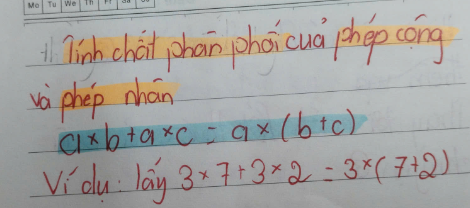 Mo Tu We Th Fr Sa Su
Tính chất phân phối của phép cộng
và phép nhân
a×b+a×c = a×(b+c)
Ví dụ: lấy 3×7+3×2 = 3×(7+2)